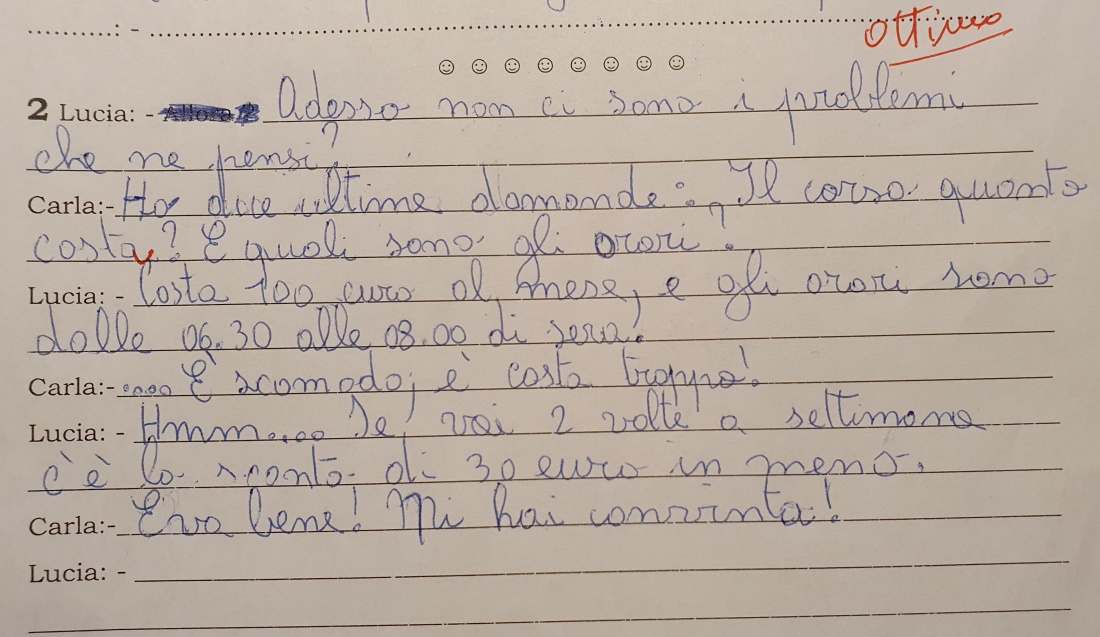 ..........: - ..........
ottimo
☺ ☺ ☺ ☺ ☺ ☺ ☺ ☺
2 Lucia: - Adesso non ci sono i problemi
che ne pensi?
Carla:- Ho due ultime domande: Il corso quanto
costa? E quali sono gli orari?
Lucia: - Costa 100 euro al mese, e gli orari sono
dalle 06.30 alle 08.00 di sera!
Carla:-.... È scomodo, e costa troppo!
Lucia: - Hmm.... Se vai 2 volte a settimana
c'è lo sconto di 30 euro in meno.
Carla:- E va bene! Mi hai convinta!
Lucia: -